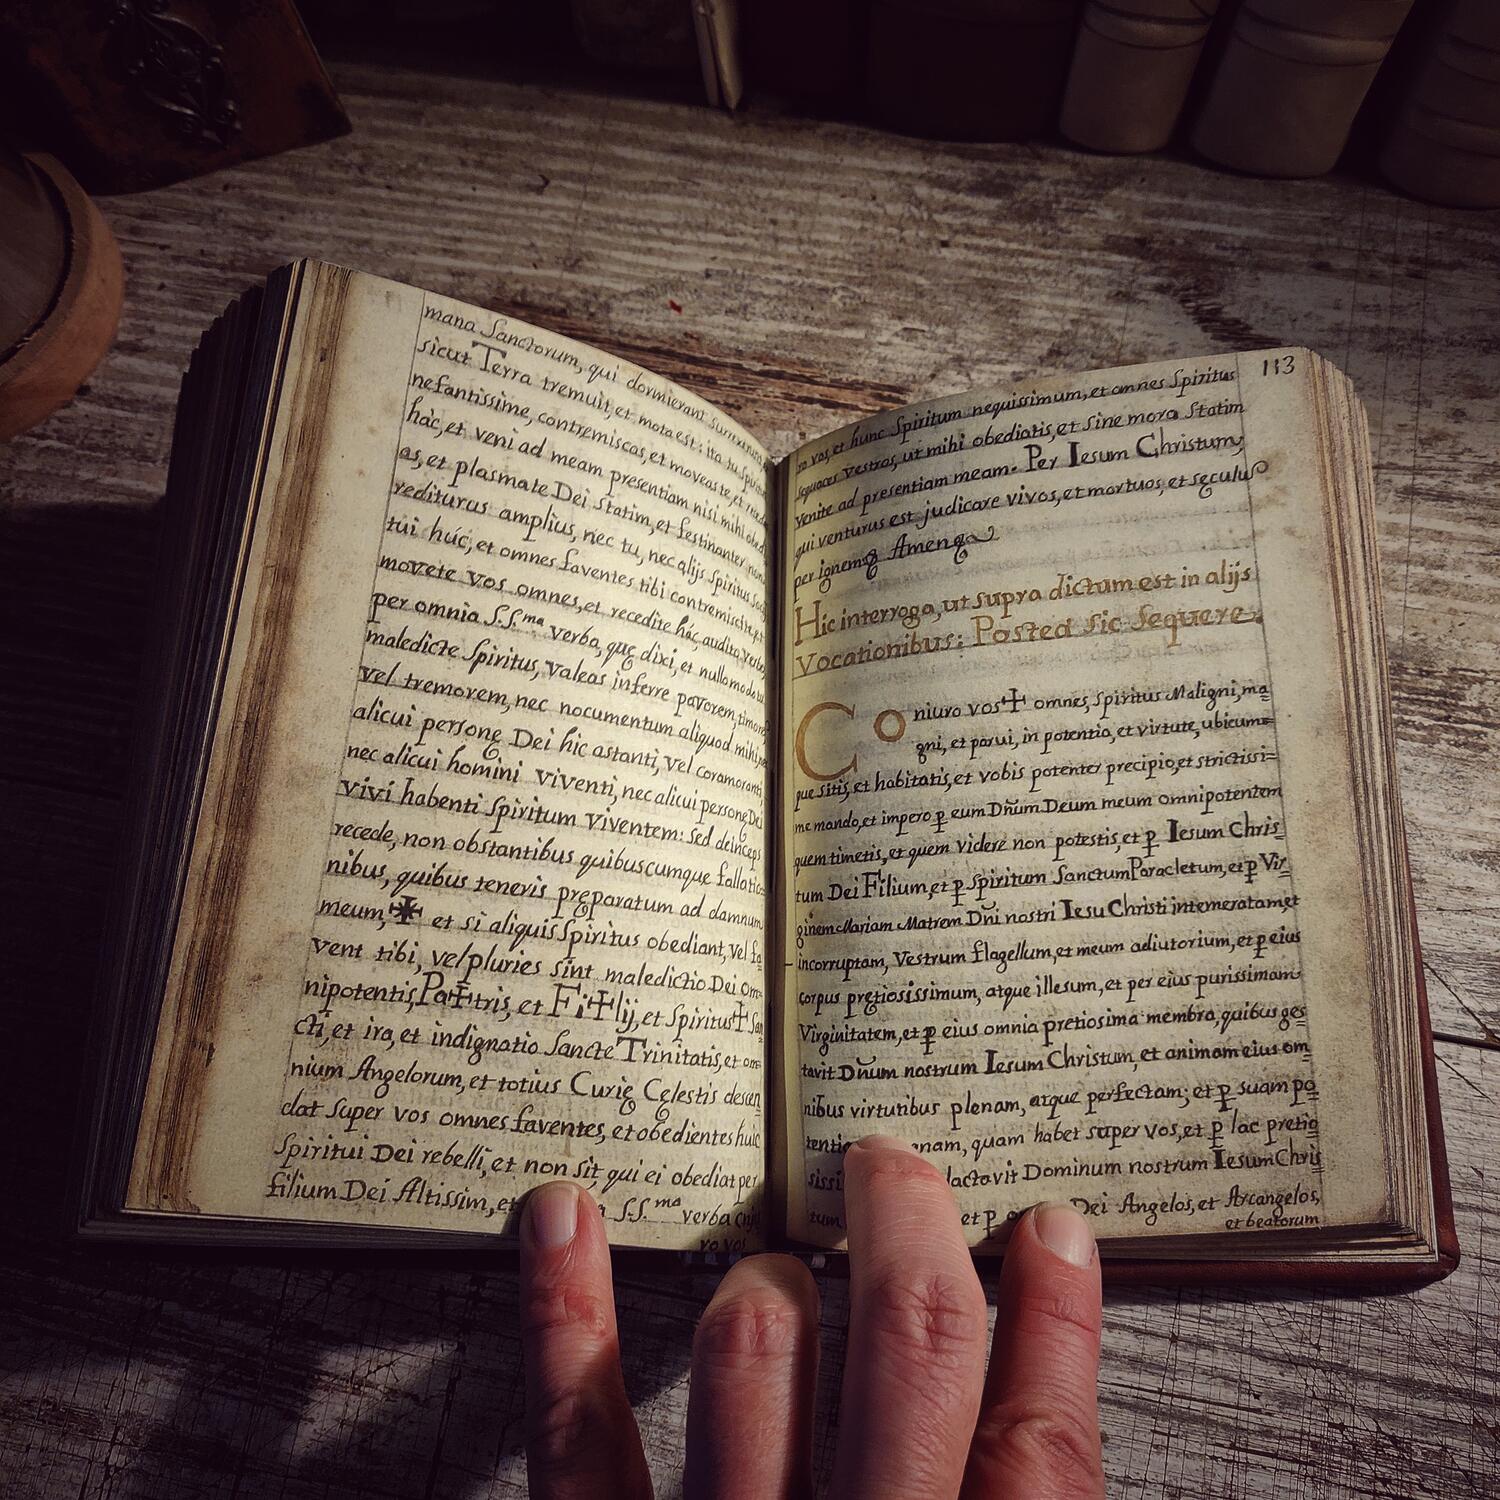 mana Sanctorum, qui dormierant surrexerunt
sicut Terra tremuit, et mota est: ita tu Spiritus
nefantissime, contremiscas, et moveas te, et
hác, et veni ad meam presentiam nisi mihi
as, et plasmate Dei Statim, et festinanter non
rediturus amplius, nec tu, nec alijs Spiritus
tui húc, et omnes faventes tibi contremiscite, et
movete vos omnes, et recedite hác, audita
per omnia S.S.ma verba, quę dixi, et nullo modo tu
maledicte Spiritus, valeas inferre pavorem, timore
vel tremorem, nec nocumentum aliquod mihi,
alicui personę Dei hic astanti, vel coram
nec alicui homini viventi, nec alicui personę Dei
vivi habenti Spiritum viventem: Sed deinceps
recede, non obstantibus quibuscumque fallatio=
nibus, quibus teneris pręparatum ad damnum
meum, ✠ et si aliquis Spiritus obediant, vel fa=
vent tibi, vel pluries sint maledictio Dei om=
nipotentis, Pa✠tris, et Fi✠lij, et Spiritus✠ San
cti, et ira, et indignatio Sancte Trinitatis, et om=
nium Angelorum, et totius Curię Cęlestis descen
dat super vos omnes faventes, et obedientes huic
Spiritui Dei rebelli, et non sit qui ei obediat per
filium Dei Altissim, et S.S.ma verba
ro vos
113
ro vos, et hunc Spiritum nequissimum, et omnes Spiritus
sequaces vestros, ut mihi obediatis, et sine mora Statim
venite ad presentiam meam. Per Iesum Christum,
qui venturus est judicare vivos, et mortuos, et sęculu
per ignem Amen
Hic interroga, ut supra dictum est in alijs
Vocationibus: Postea sic sequere.
Coniuro vos ✠ omnes, Spiritus Maligni, ma=
gni, et parui, in potentia, et virtute, ubicum=
que sitis, et habitatis, et vobis potenter precipio, et strictissi=
me mando, et impero ꝑ eum Dn̄um Deum meum omnipotentem
quem timetis, et quem videre non potestis, et ꝑ Iesum Chris=
tum Dei Filium, et ꝑ Spiritum Sanctum Paracletum, et ꝑ Vir=
ginem Mariam Matrem Dn̄i nostri Iesu Christi intemeratam, et
incorruptam, Vestrum flagellum, et meum adiutorium, et ꝑ eius
corpus pretiosissimum, atque illesum, et per eius purissimam
Virginitatem, et ꝑ eius omnia pretiosima membra, quibus ges
tavit Dn̄um nostrum Iesum Christum, et animam eius om=
nibus virtutibus plenam, atque perfectam; et ꝑ suam po
tentia nam, quam habet super vos, et ꝑ lac pretio
sissi lactavit Dominum nostrum Iesum Chris
tum et ꝑ Dei Angelos, et Arcangelos,
et beatorum